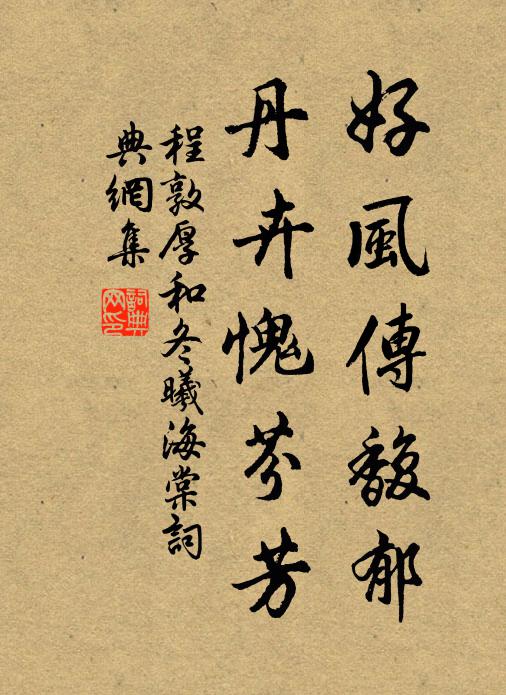 好風傳馥郁
丹卉愧芬芳
程敦厚和冬曦海棠詞
典網集
詞典網印